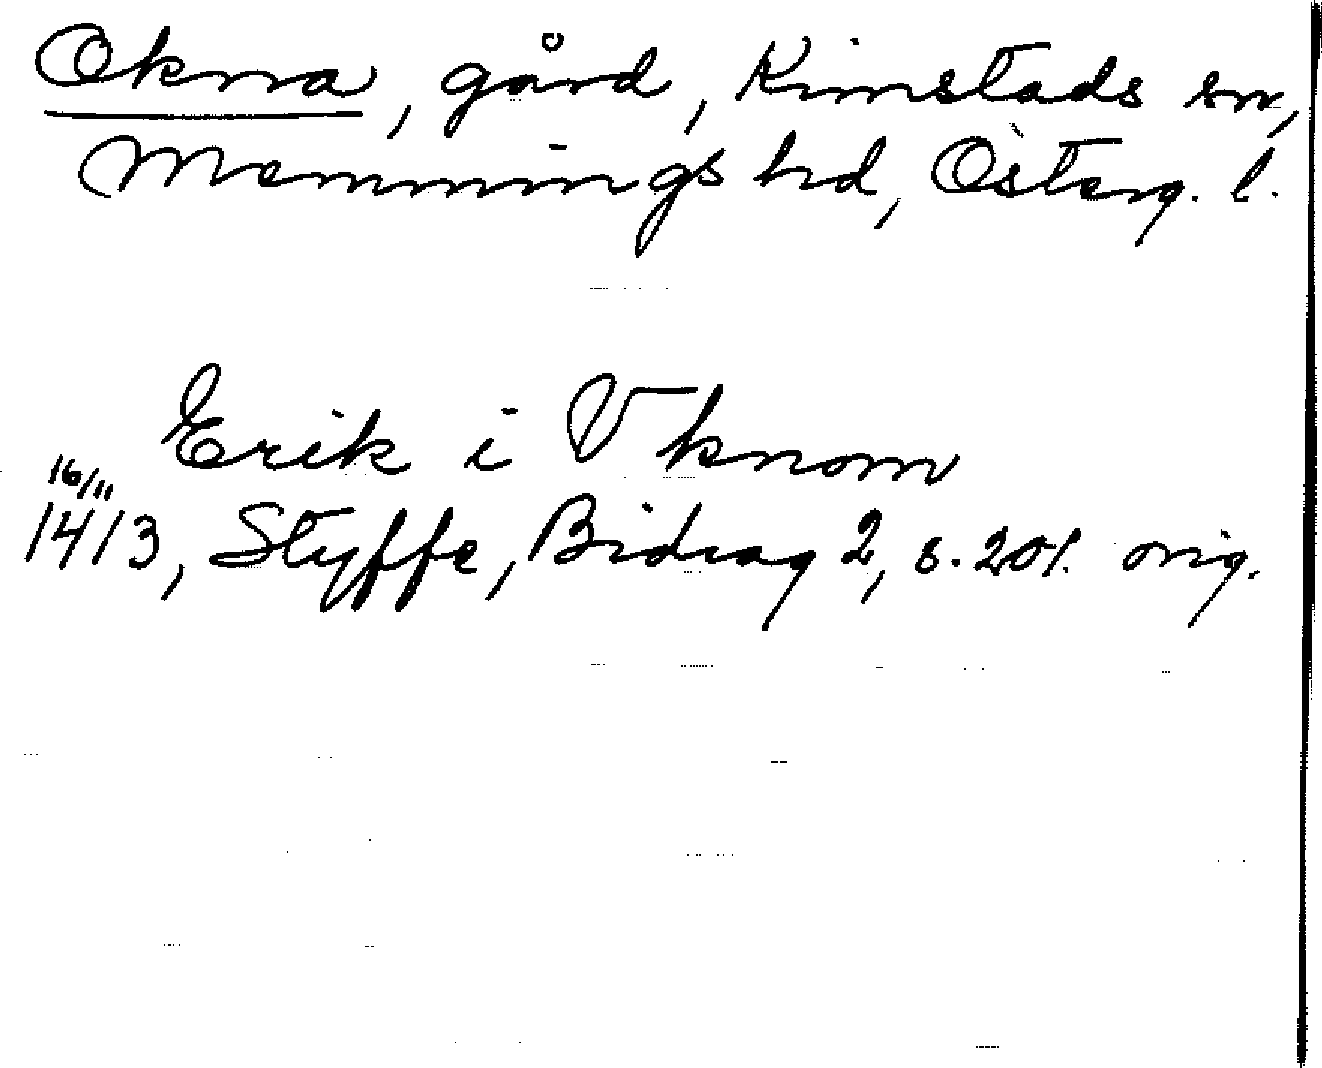 Okna, gård, Kimstads sn,
Memmings hd, Österg. l.
Erik i Vknom
16/11
1413, Styffe, Bidrag 2, s. 201. orig.